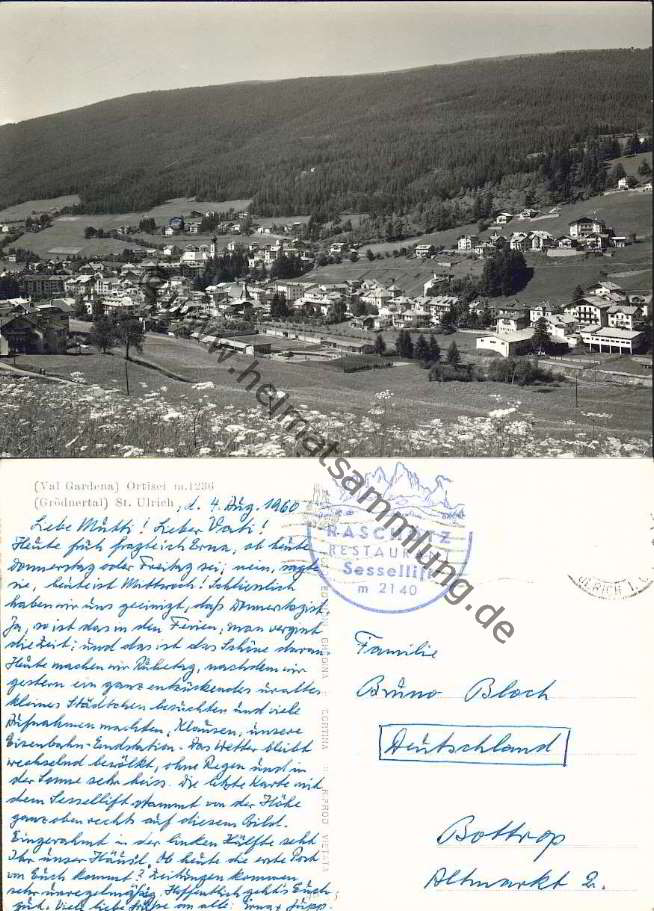 (Val Gardena) Ortisei m.1236
(Grödnertal) St. Ulrich, d. 4. Aug. 1960
Liebe Mutti! Lieber Vati!
Heute früh fragte ich Erna, ob heute
Donnerstag oder Freitag sei; nein, sagte
sie, heute ist Mittwoch! Schließlich
haben wir uns geeinigt, daß Donnerstag ist.
Ja, so ist das in den Ferien, man vergißt
die Zeit; und das ist das Schöne daran.
Heute machen wir Ruhetag, nachdem wir
gestern ein ganz entzückendes uraltes
kleines Städtchen besuchten und viele
Aufnahmen machten, Klausen, unsere
Eisenbahn-Endstation. Das Wetter bleibt
wechselnd bewölkt, ohne Regen und in
der Sonne sehr heiss. Die letzte Karte mit
dem Sessellift stammt von der Höhe
ganz oben rechts auf diesem Bild.
Eingerahmt in der linken Hälfte seht
Ihr unser Häusl. Ob heute die erste Post
von Euch kommt? Zeitungen kommen
sehr unregelmäßig. Hoffentlich geht's Euch
gut. Viele liebe Grüße an alle. Erna + Jupp.
RASCHÖTZ
RESTAURANT
Sessellift
m 2140
ULRICH I. G.
Familie
Bruno Bloch
Deutschland
Bottrop
Altmarkt 2.
www.heimatsammlung.de